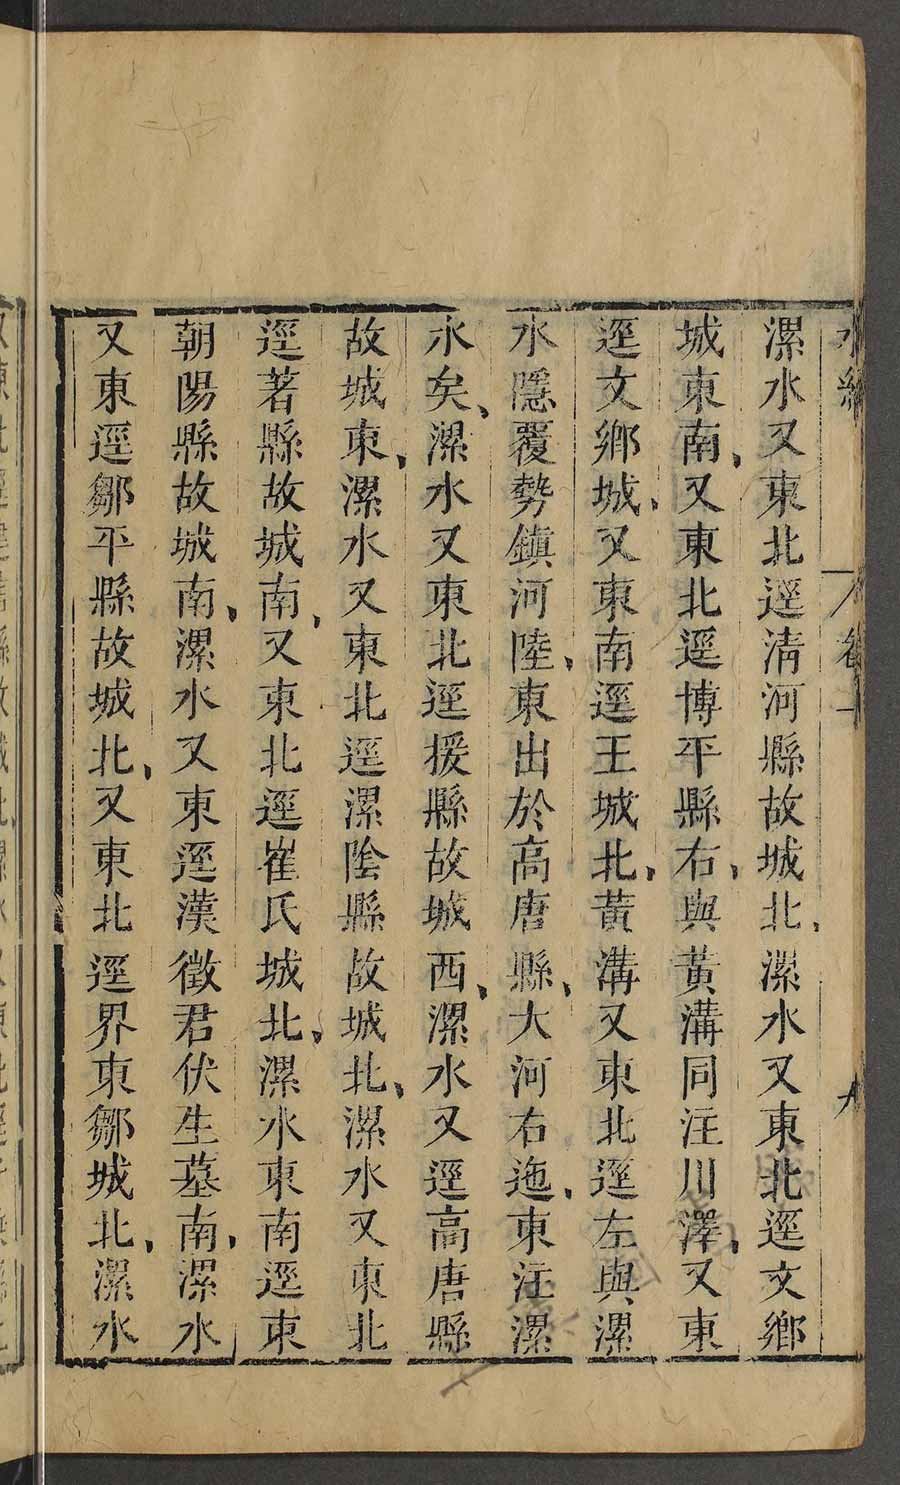 水經 卷一 九
漯水又東北逕清河縣故城北、漯水又東北逕文鄉
城東南、又東北逕博平縣右、與黃溝同注川澤、又東
逕文鄉城、又東南逕王城北、黃溝又東北逕左與漯
水隱覆勢鎮河陸、東出於高唐縣、大河右迆、東注漯
水矣、漯水又東北逕援縣故城西、漯水又逕高唐縣
故城東、漯水又東北逕漯陰縣故城北、漯水又東北
逕著縣故城南、又東北逕崔氏城北、漯水東南逕東
朝陽縣故城南、漯水又東逕漢徵君伏生墓南、漯水
又東逕鄒平縣故城北、又東北逕界東鄒城北、漯水